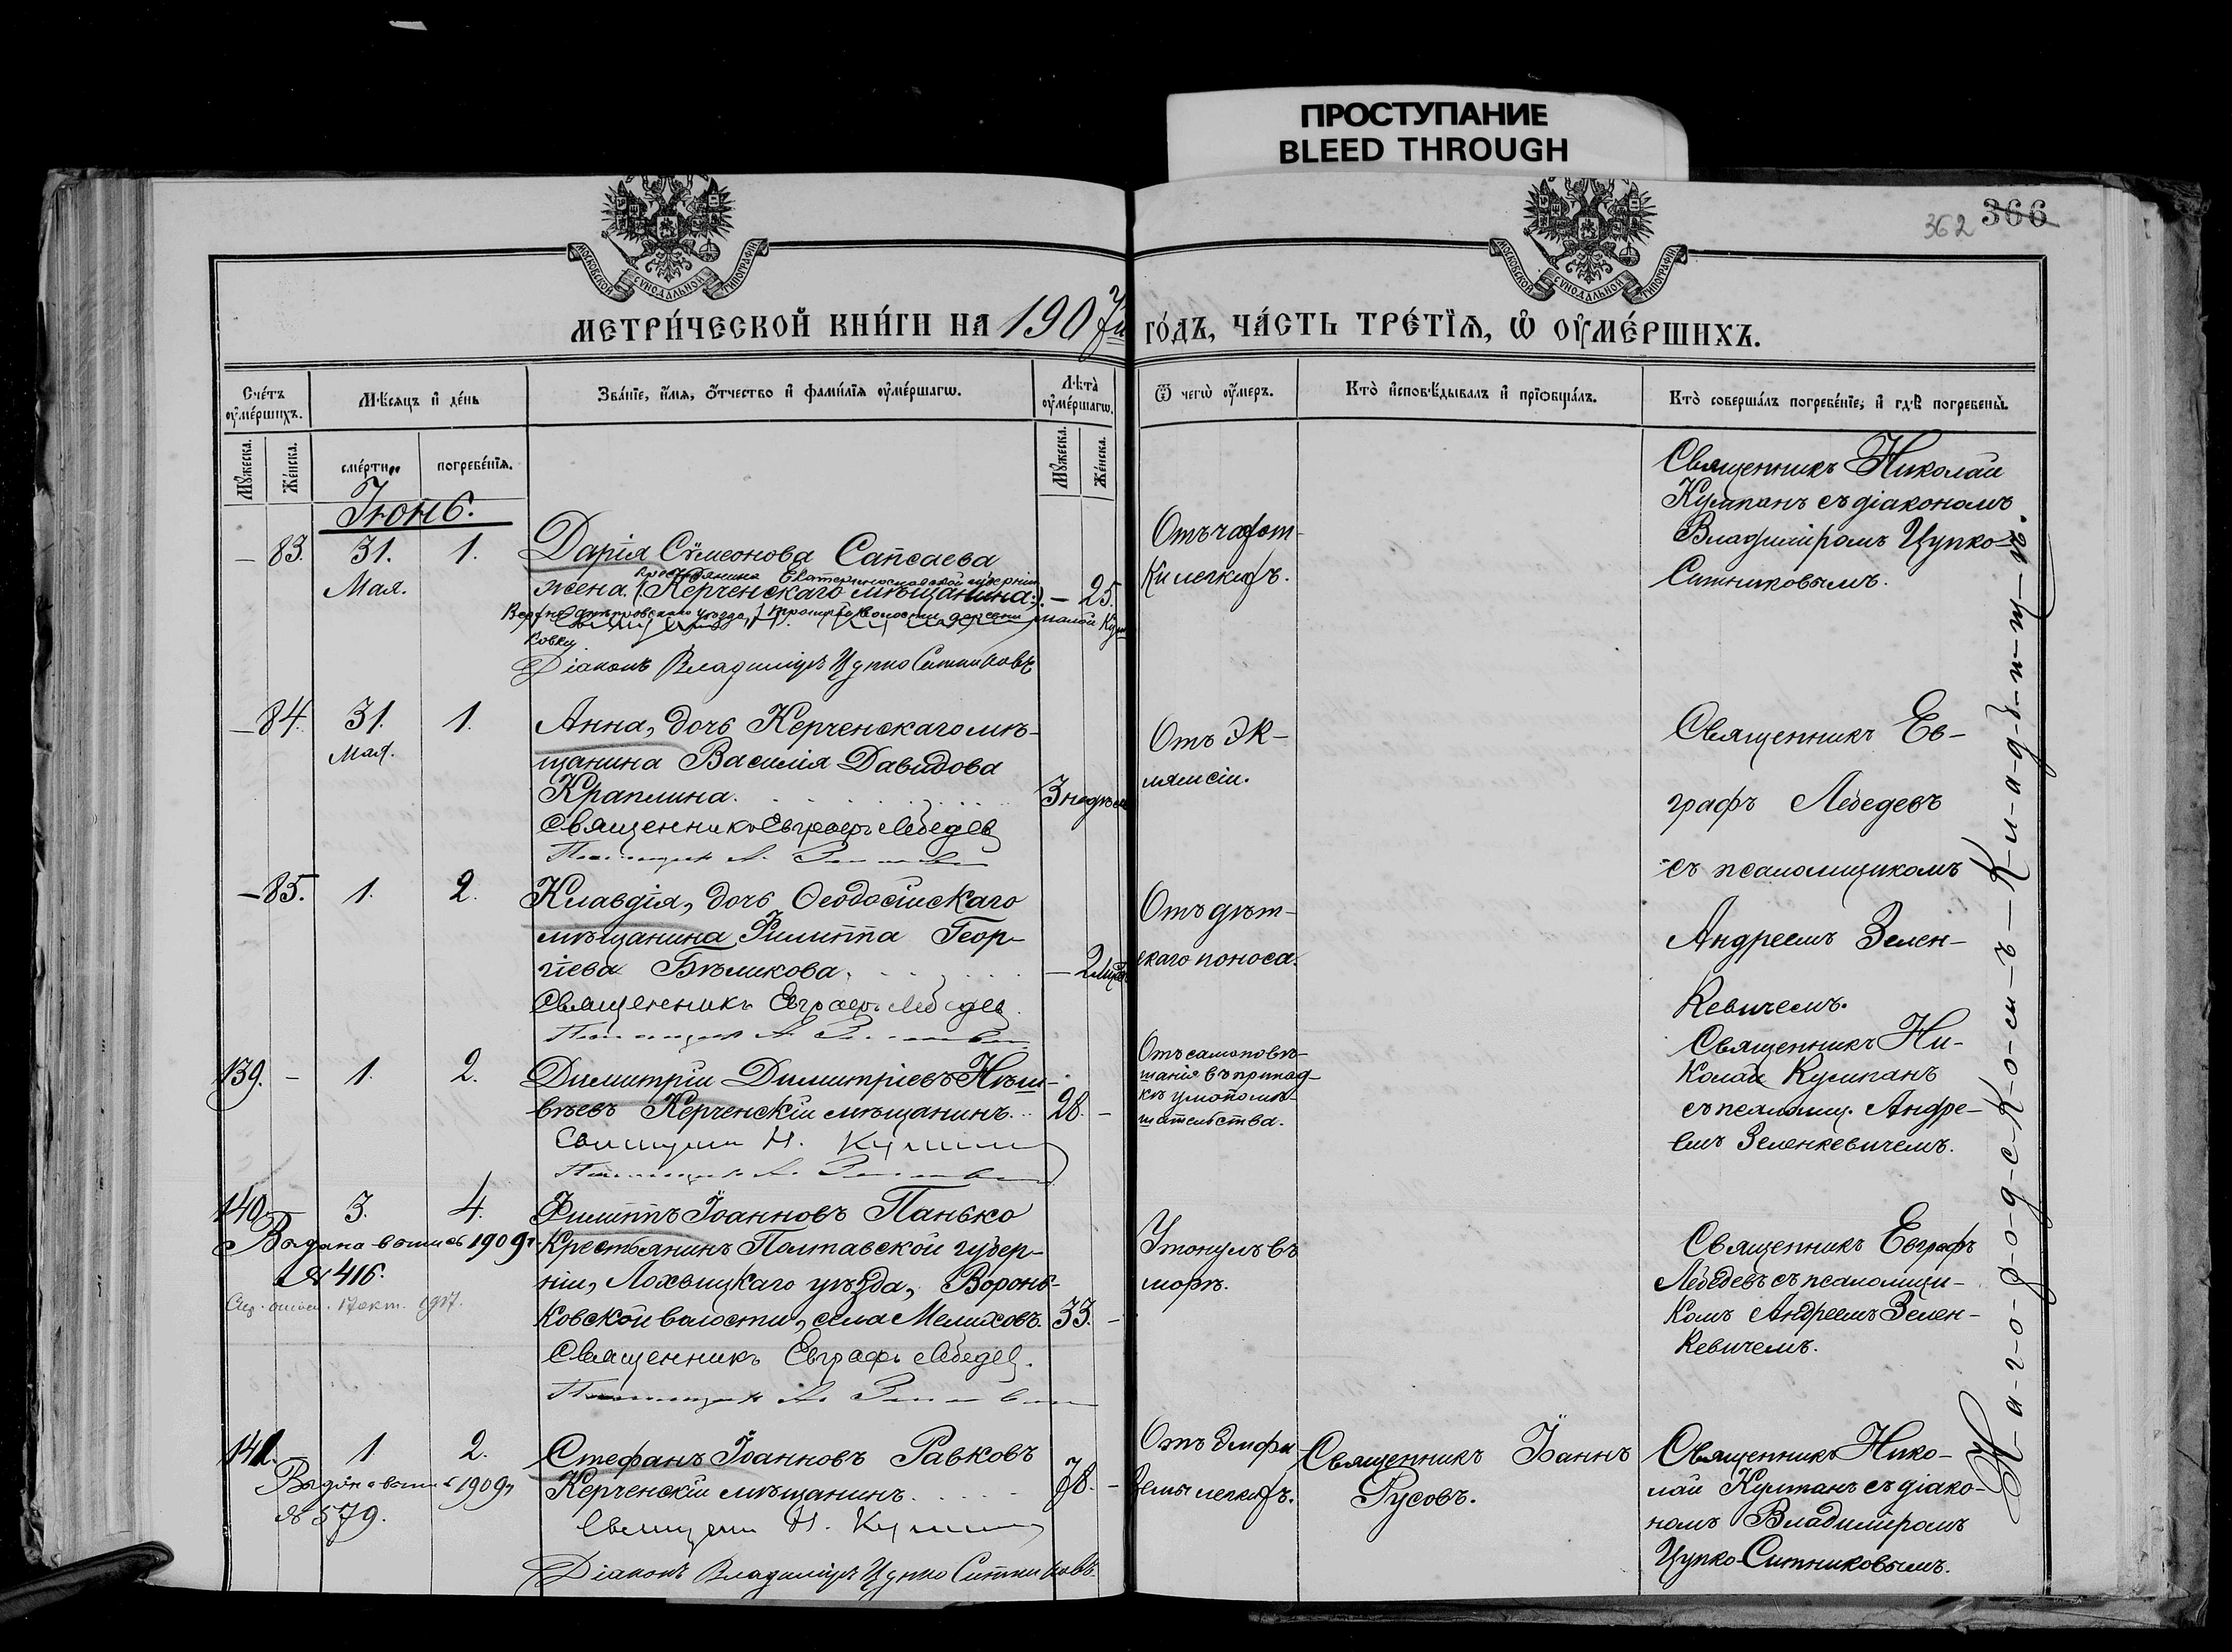 ПРОСТУПАНИЕ
BLEED THROUGH
362 366
МОСКОВСКОЙ СѴНОДАЛЬНОЙ ТИПОГРАФІИ
МОСКОВСКОЙ СѴНОДАЛЬНОЙ ТИПОГРАФІИ
МЕТРИ́ЧЕСКОЙ КНИ́ГИ НА 1907й го́дъ, ча́сть тре́тїѧ, ѿ оу҆ме́ршихъ.
Сче́тъ оу҆ме́ршихъ.
Мꙋжеска.
Же́нска.
Мѣ́сѧцъ и҆ де́нь
сме́рти
погребе́нїѧ.
Зва́нїе, и҆́мѧ, ѻ҆́тчество и҆ фами́лїѧ оу҆ме́ршагѡ.
Лѣ́та оу҆ме́ршагѡ.
Мꙋжеска.
Же́нска.
Ѿ чегѡ̀ оу҆́меръ.
Кто̀ и҆сповѣ́дывалъ и҆ прїѡбща́лъ.
Кто̀ соверша́лъ погребе́нїе, и҆ гдѣ̀ погребены̀.
Іюнь.
— 83. 31. 1.
Мая.
Дарія Сѵмеонова Сапсаева
крестьянина Екатеринославской губерніи
жена (Керченскаго мѣщанина:). — 25.
Верхнеднѣпровскаго уѣзда, волости деревни малой
ковки
Діаконъ Владиміръ Цупко Ситниковъ
Отъ чахот-
ки легкихъ.
Священникъ Николай
Кумпанъ съ діакономъ
Владиміромъ Цупко-
Ситниковымъ.
— 84. 31. 1.
Мая.
Анна, дочь Керченскаго мѣ-
щанина Василія Давидова
Краплина. 3 недѣли
Священникъ Евграфъ Лебедев
Псаломщик А.
Отъ эк-
лямсіи.
Священникъ Ев-
графъ Лебедевъ
съ псаломщикомъ
Андреемъ Зелен-
кевичемъ.
— 85. 1. 2.
Клавдія, дочь Ѳеодосійскаго
мѣщанина Филиппа Геор-
гіева Бѣликова. — 2 мѣс.
Священникъ Евграфъ Лебедев
Псаломщик А.
Отъ дѣт-
скаго поноса.
139. — 1. 2.
Димитрій Димитріевъ
вѣевъ Керченскій мѣщанинъ... 28. —
Священн Н. Кумпан
Псаломщик А.
Отъ самоповѣ-
шанія въ припад-
кѣ умопомѣ-
шательства.
Священникъ Ни-
колай Кумпанъ
съ псаломщ. Андре-
емъ Зеленкевичемъ.
140. 3. 4.
Выдана выпись 1909г.
№ 416.
17 окт. 1917.
Филиппъ Іоанновъ Панько
Крестьянинъ Полтавской губер-
ніи, Лохвицкаго уѣзда, Воронь-
ковской волости, села Мелиховъ. 33. —
Священникъ Евграфъ Лебедев.
Псаломщик А.
Утонулъ въ
морѣ.
Священникъ Евграфъ
Лебедевъ съ псаломщи-
комъ Андреемъ Зелен-
кевичемъ.
141. 1 2.
Выдана выпись 1909г.
№ 579.
Стефанъ Іоанновъ Равковъ
Керченскій мѣщанинъ. 78. —
Священн Н. Кумпан
Діаконъ Владиміръ Цупко Ситниковъ.
Отъ эмфи-
земы легкихъ.
Священникъ Іоаннъ
Русовъ.
Священникъ Нико-
лай Кумпанъ съ діако-
номъ Владиміромъ
Цупко-Ситниковымъ.
На-г-о-р-о-д-с-к-о-м-ъ — К-л-а-д-б-и-щ-ѣ.